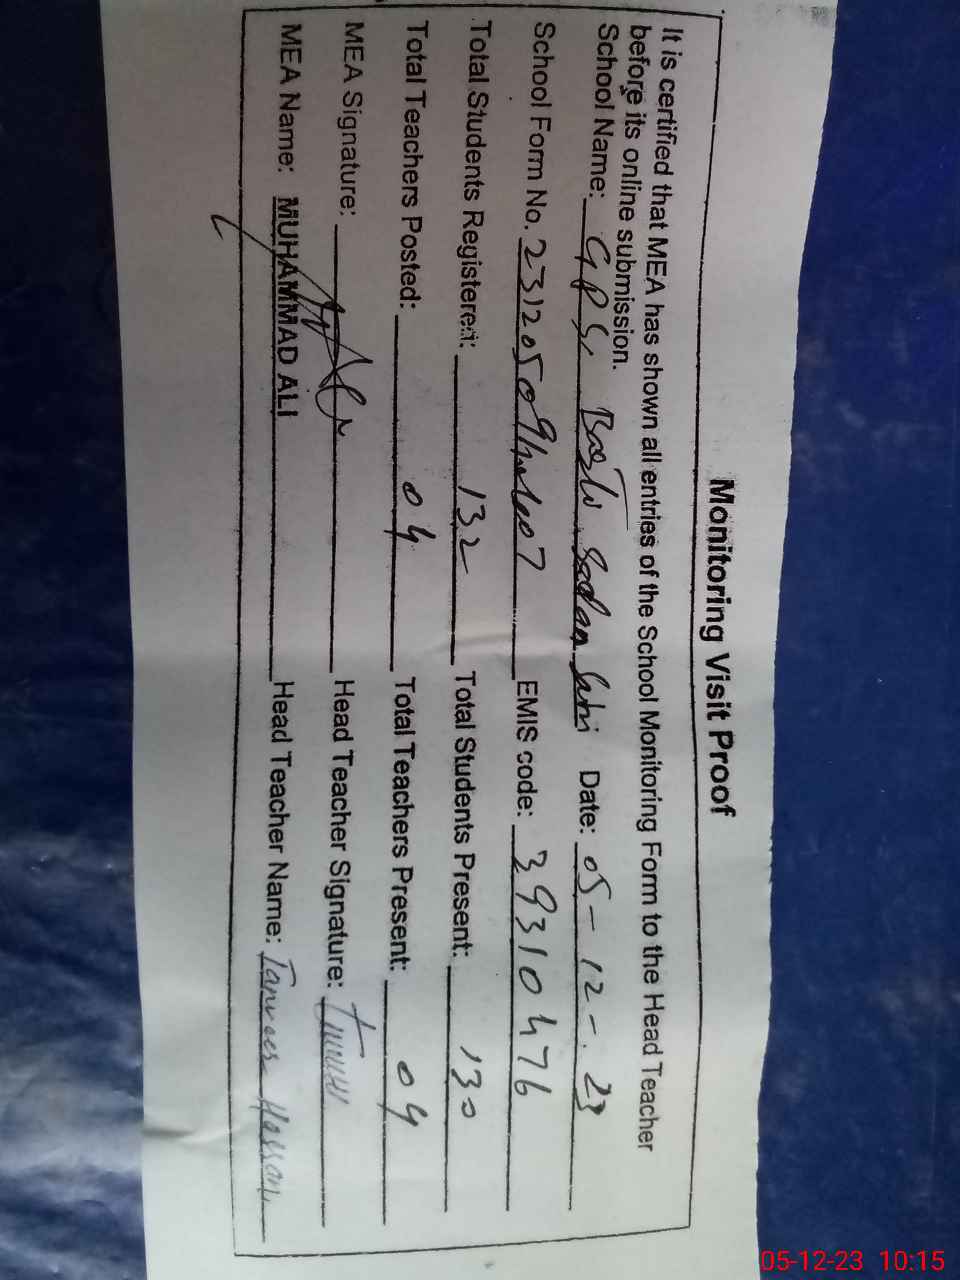 Monitoring Visit Proof
It is certified that MEA has shown all entries of the School Monitoring Form to the Head Teacher
before its online submission.
School Name: GPS, Basti Date: 05-12-23
School Form No. EMIS code: 39310476
Total Students Registered: 132 Total Students Present: 130
Total Teachers Posted: 04 Total Teachers Present: 04
MEA Signature: Head Teacher Signature:
MEA Name: MUHAMMAD ALI Head Teacher Name: Tanveer Hassan
05-12-23 10:15